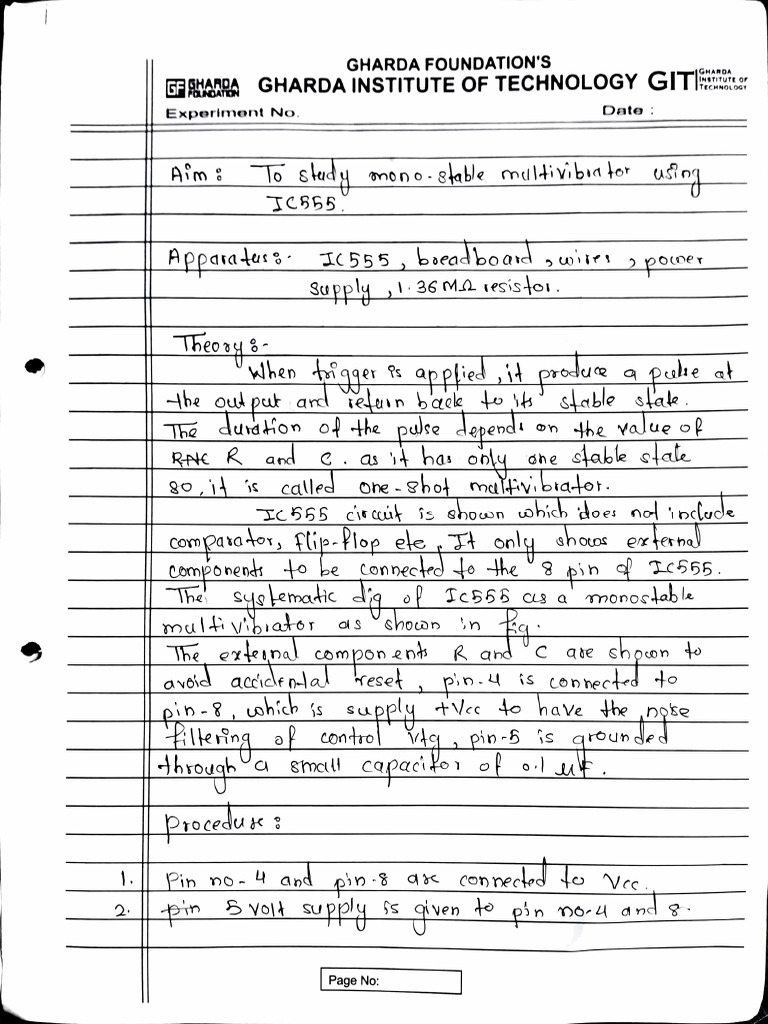 GHARDA FOUNDATION'S
GF GHARDA FOUNDATION GHARDA INSTITUTE OF TECHNOLOGY GIT GHARDA INSTITUTE OF TECHNOLOGY
Experiment No. Date :
Aim : To study mono-stable multivibrator using
IC555.
Apparatus :- IC555 , breadboard , wires , power
supply , 1.36MΩ resistor.
Theory :-
When trigger is applied, it produce a pulse at
the output and return back to its stable state.
The duration of the pulse depends on the value of
R and C . as it has only one stable state
so, it is called one-shot multivibrator.
IC555 circuit is shown which does not include
comparator, flip-flop etc. It only shows external
components to be connected to the 8 pin of IC555.
The systematic dig of IC555 as a monostable
multivibrator as shown in fig.
The external components R and C are shown to
avoid accidental reset , pin-4 is connected to
pin-8, which is supply +Vcc to have the noise
filtering of control vtg , pin-5 is grounded
through a small capacitor of 0.1 μF.
Procedure :
1. Pin no-4 and pin-8 are connected to Vcc.
2. pin 5 volt supply is given to pin no-4 and 8.
Page No: